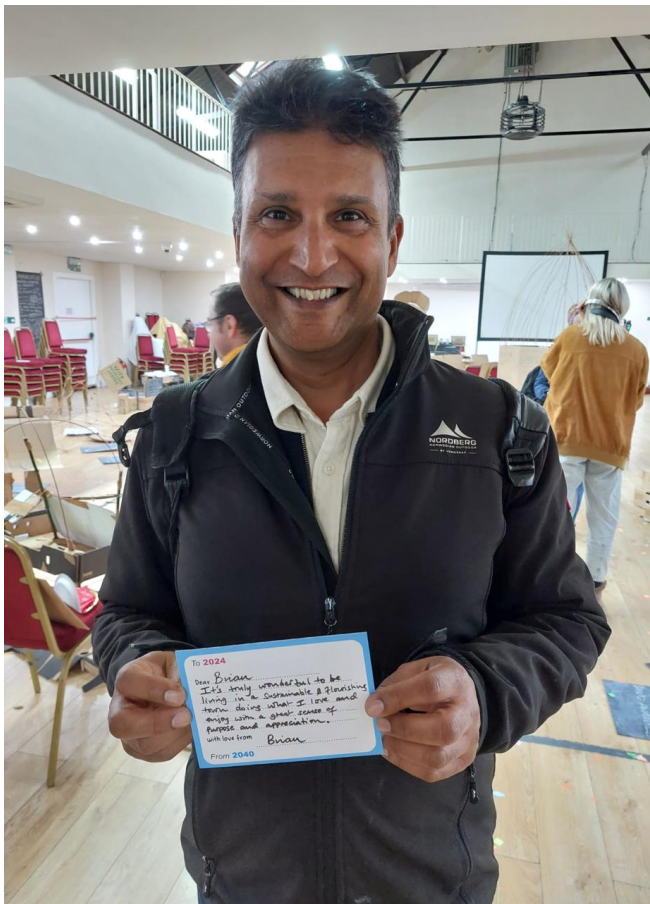 NORDBERG
NORWEGIAN OUTDOOR
To 2024
Dear Brian
It's truly wonderful to be
living in a sustainable & flourishing
town doing what I love and
enjoy with a great sense of
purpose and appreciation.
with love from Brian
From 2040